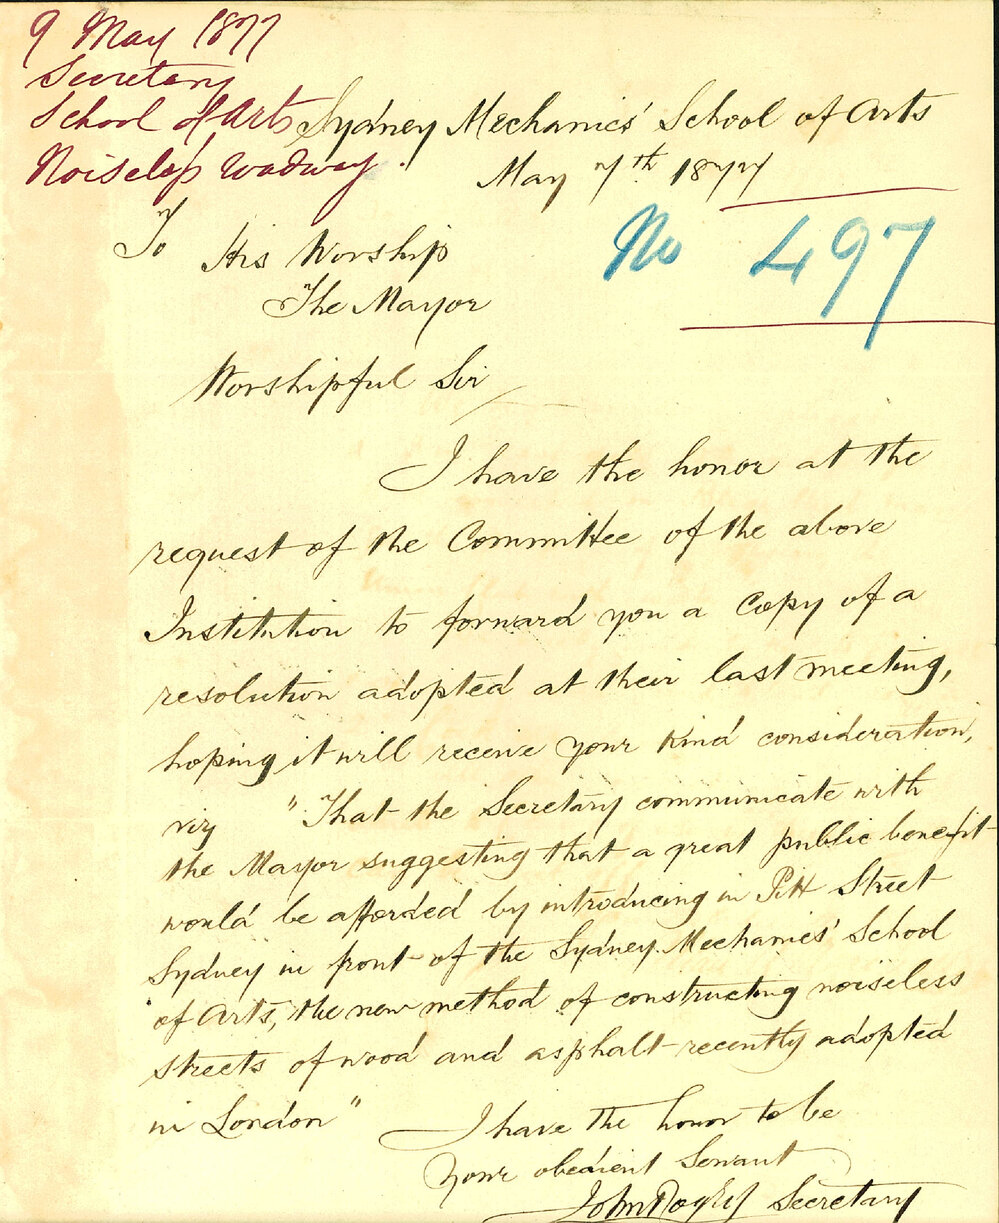 9 May 1877
Secretary
School of Arts
Noiseless Roadway.
Sydney Mechanics' School of Arts
May 7th 1877
No 497
To His Worship
The Mayor
Worshipful Sir
I have the honor at the
request of the Committee of the above
Institution to forward you a Copy of a
resolution adopted at their last meeting,
hoping it will receive your kind consideration,
viz "That the Secretary communicate with
the Mayor suggesting that a great public benefit
would be afforded by introducing in Pitt Street
Sydney in front of the Sydney Mechanics' School
of Arts, the new method of constructing noiseless
streets of wood and asphalt recently adopted
in London"
I have the honor to be
Your obedient Servant
John Secretary